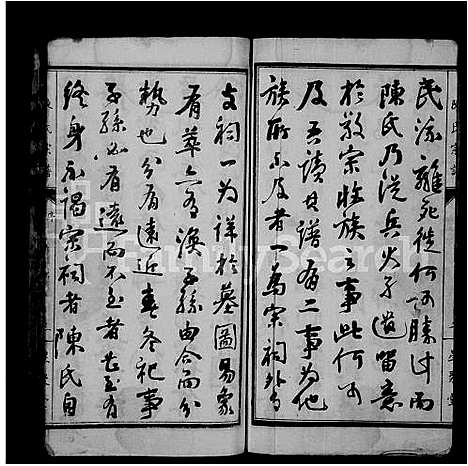 民流離死徙何可勝計而
陳氏乃從兵火孑遺留意
於敬宗收族之事此何可
及吾讀其譜有二事為他
族所不及者一為宗祠外有
支祠一為詳於墓圖易象
有萃亦有渙子孫由合而分
勢也分有遠近春冬祀事
子孫必有遠而不至者甚至有
終身不謁宗祠者陳氏自